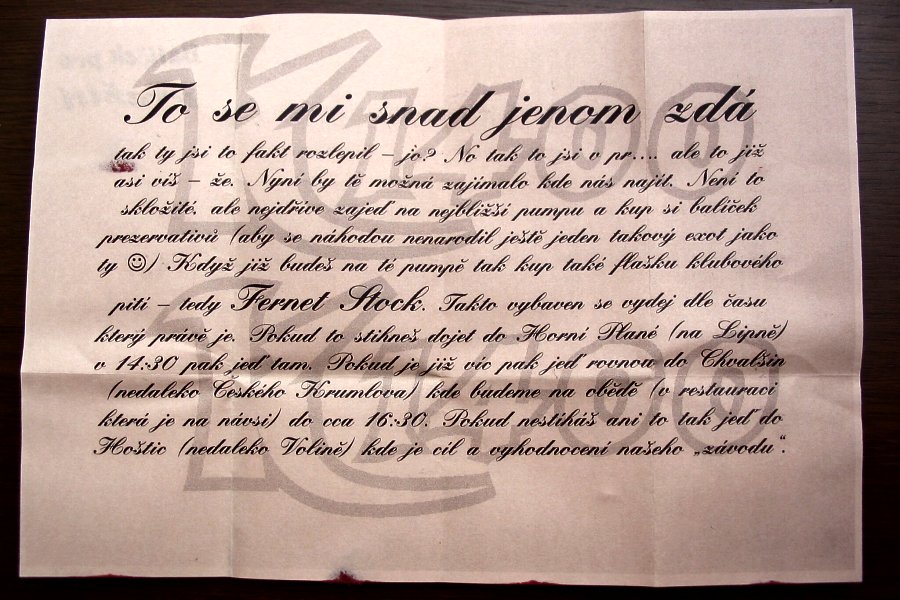 To se mi snad jenom zdá
tak ty jsi to fakt rozlepil – jo? No tak to jsi v pr…. ale to již
asi víš – že. Nyní by tě možná zajímalo kde nás najít. Není to
skložité, ale nejdříve zajeď na nejbližší pumpu a kup si balíček
prezervativů (aby se náhodou nenarodil ještě jeden takový exot jako
ty ☺) Když již budeš na té pumpě tak kup také flašku klubového
pití – tedy Fernet Stock. Takto vybaven se vydej dle času
který právě je. Pokud to stihneš dojet do Horní Plané (na Lipně)
v 14:30 pak jeď tam. Pokud je již víc pak jeď rovnou do Chvalšin
(nedaleko Českého Krumlova) kde budeme na obědě (v restauraci
která je na návsi) do cca 16:30. Pokud nestíháš ani to tak jeď do
Hoštic (nedaleko Volině) kde je cíl a vyhodnocení našeho „závodu“.